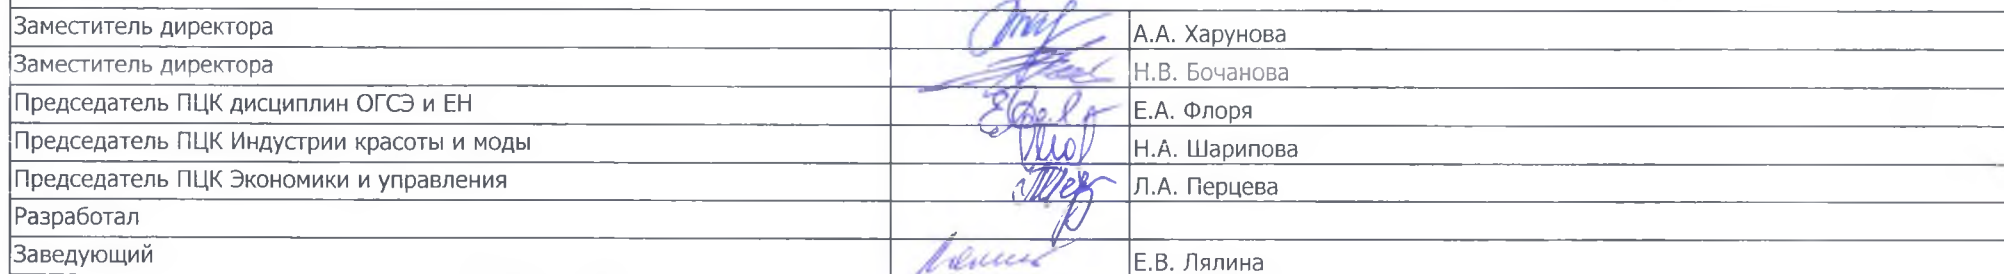 Заместитель директора А.А. Харунова
Заместитель директора Н.В. Бочанова
Председатель ПЦК дисциплин ОГСЭ и ЕН Е.А. Флоря
Председатель ПЦК Индустрии красоты и моды Н.А. Шарипова
Председатель ПЦК Экономики и управления Л.А. Перцева
Разработал
Заведующий Е.В. Лялина